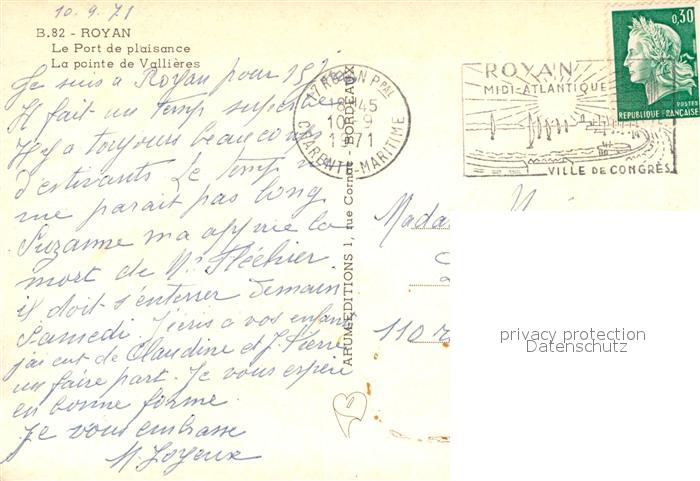 10.9.71
B.82 - ROYAN
Le Port de plaisance
La pointe de Vallières
Je suis a Royan pour 15 j
Il fait un temps superbe
Il y a toujours beaucoup
d'estivants Le temps n
me parait pas long
Suzanne m'a appris la
mort de Mr Fléchier
il doit s'enterrer demain
Samedi. J'écris a vos enfants
j'ai eut de Claudine et J. Pierre
un faire part. Je vous espère
en bonne forme
Je vous embrasse
M. Joyeux
ARUM-EDITIONS 1, rue Cornac BORDEAUX
17 ROYAN PPAL
18H45
10-9
1971
CHARENTE-MARITIME
ROYAN
MIDI-ATLANTIQUE
VILLE DE CONGRÈS
0,30
POSTES
REPUBLIQUE FRANÇAISE
Mada
110 r
privacy protection
Datenschutz